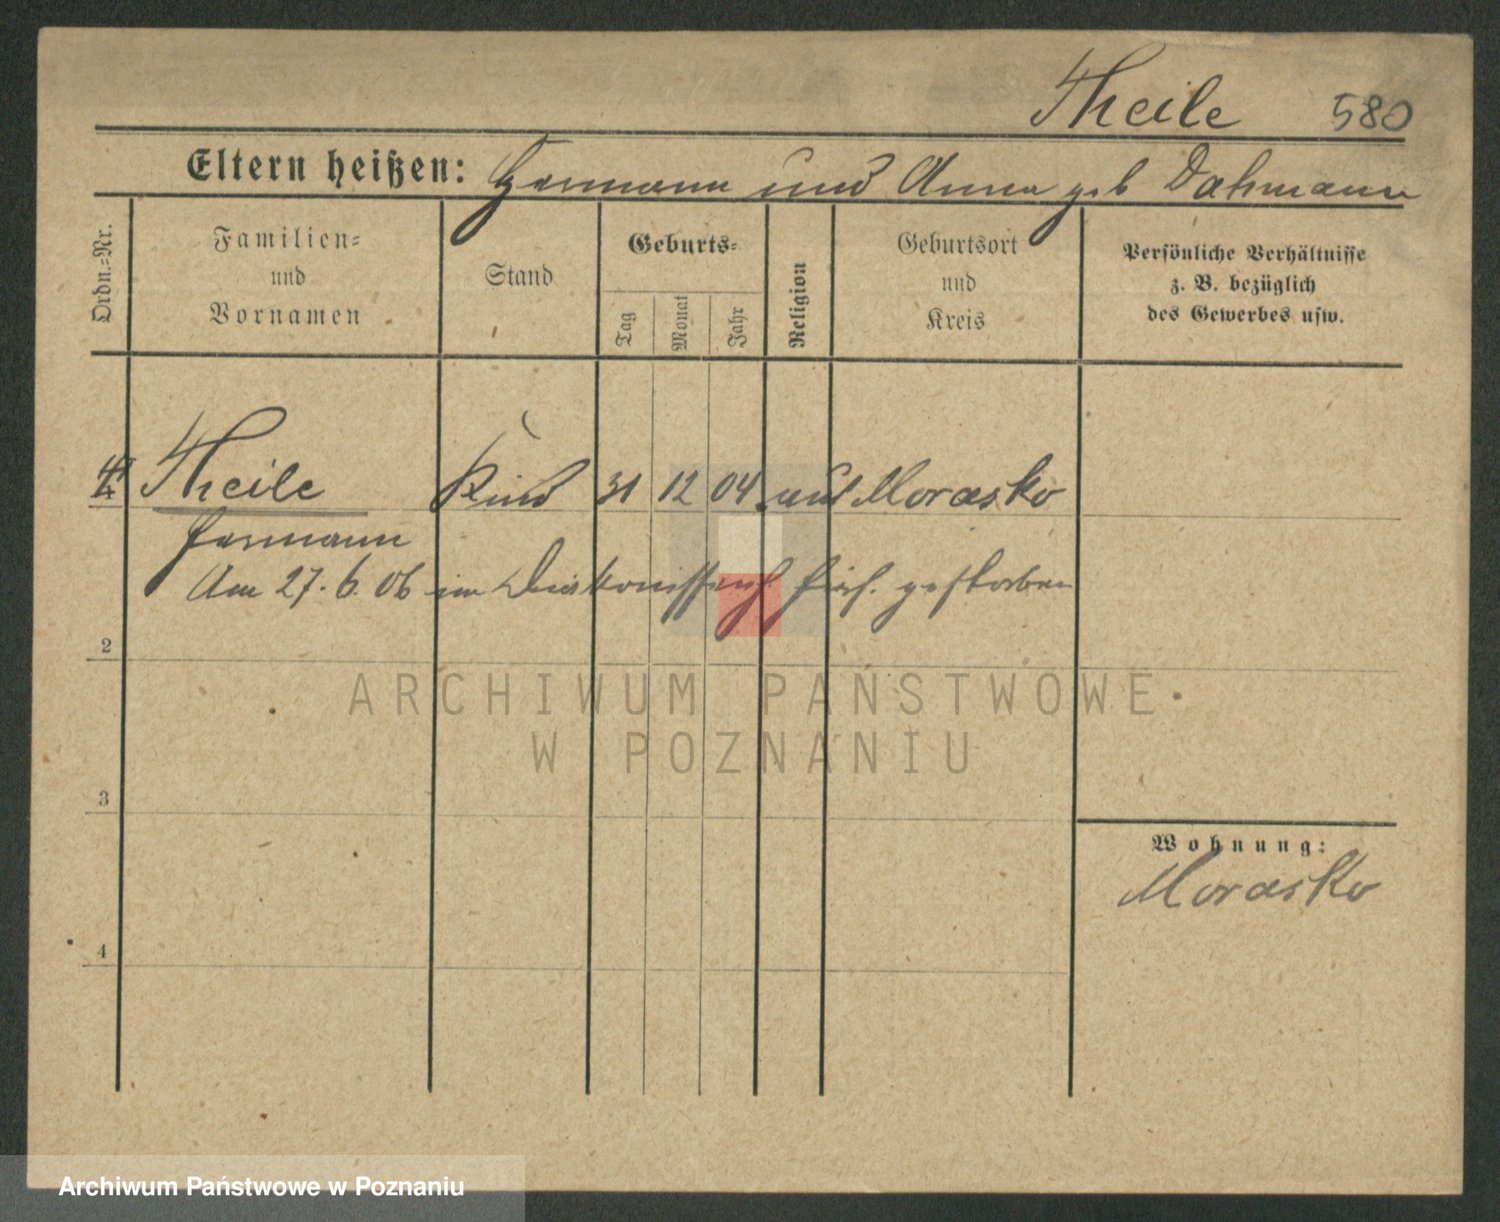 Theile 580
Eltern heißen: Hermann und Anna geb Dahmann
Ordn.=Nr.
Familien=
und
Vornamen
Stand
Geburts=
Tag
Monat
Jahr
Religion
Geburtsort
und
Kreis
Persönliche Verhältnisse
z. B. bezüglich
des Gewerbes usw.
Theile Kind 31 12 04 Morasko
Hermann
Am 27. 6. 06 im gestorben
2
ARCHIWUM PAŃSTWOWE
W POZNANIU
3
Wohnung:
Morasko
4
Archiwum Państwowe w Poznaniu